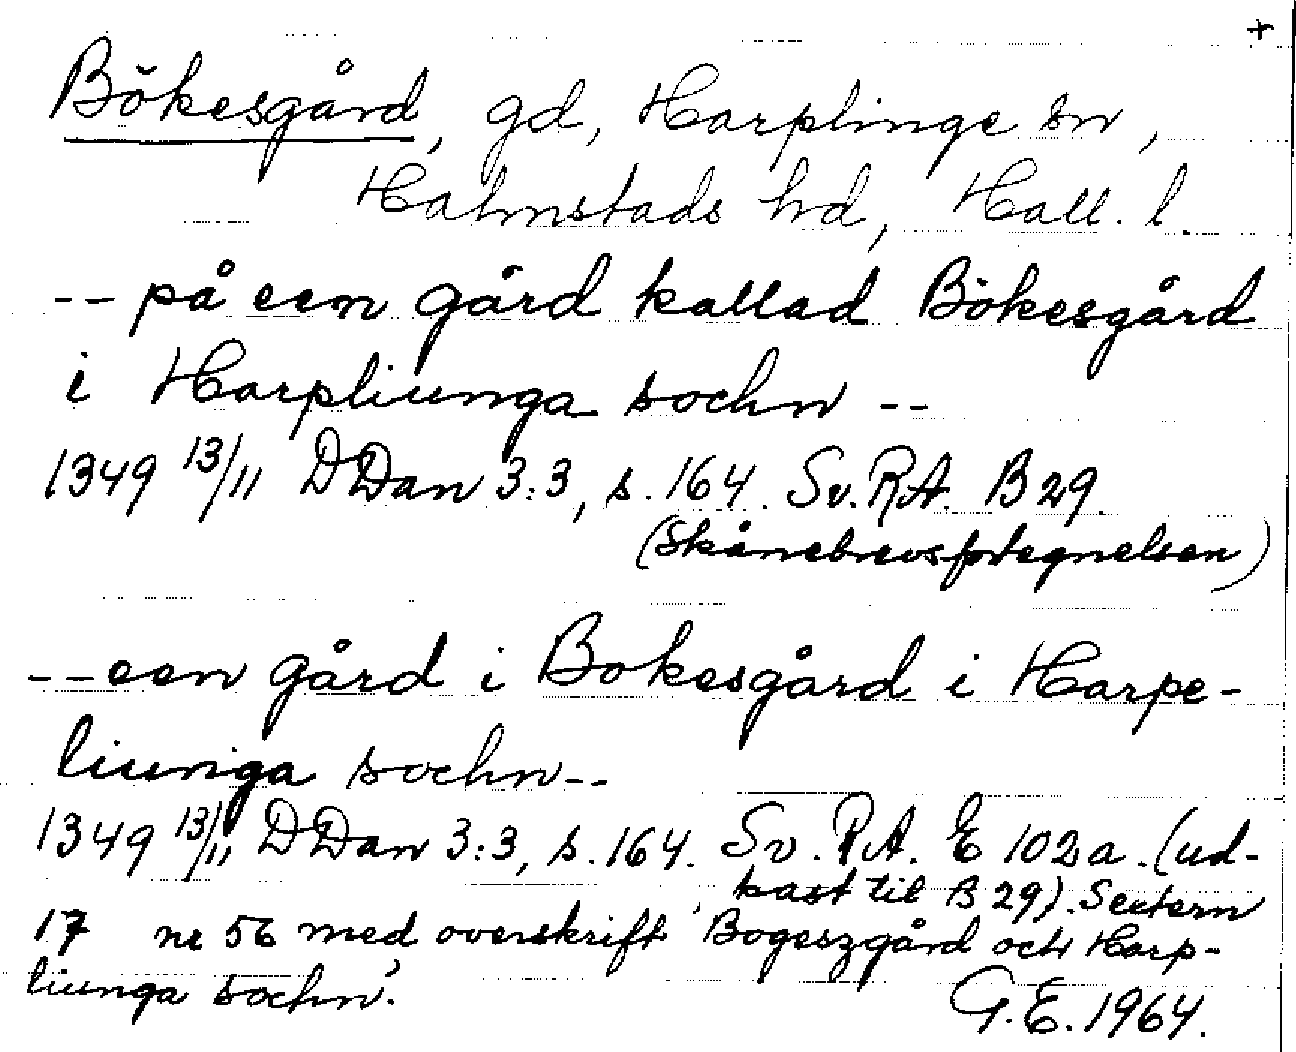 +
Bökesgård, gd, Harplinge sn,
Halmstads hd, Hall. l.
-- på een gård kallad Bökesgård
i Harpliunga sochn --
1349 13/11 DDan 3:3, s. 164. Sv. RA. B 29.
(Skånebrevsfortegnelsen)
-- een gård i Bokesgård i Harpe-
liunga sochn --
1349 13/11, DDan 3:3, s. 164. Sv. RA. E 102a. (ud-
kast til B 29). Sextern
17 nr 56 med overskrift 'Bogeszgård och Harp-
liunga sochn'.
G.E. 1964.